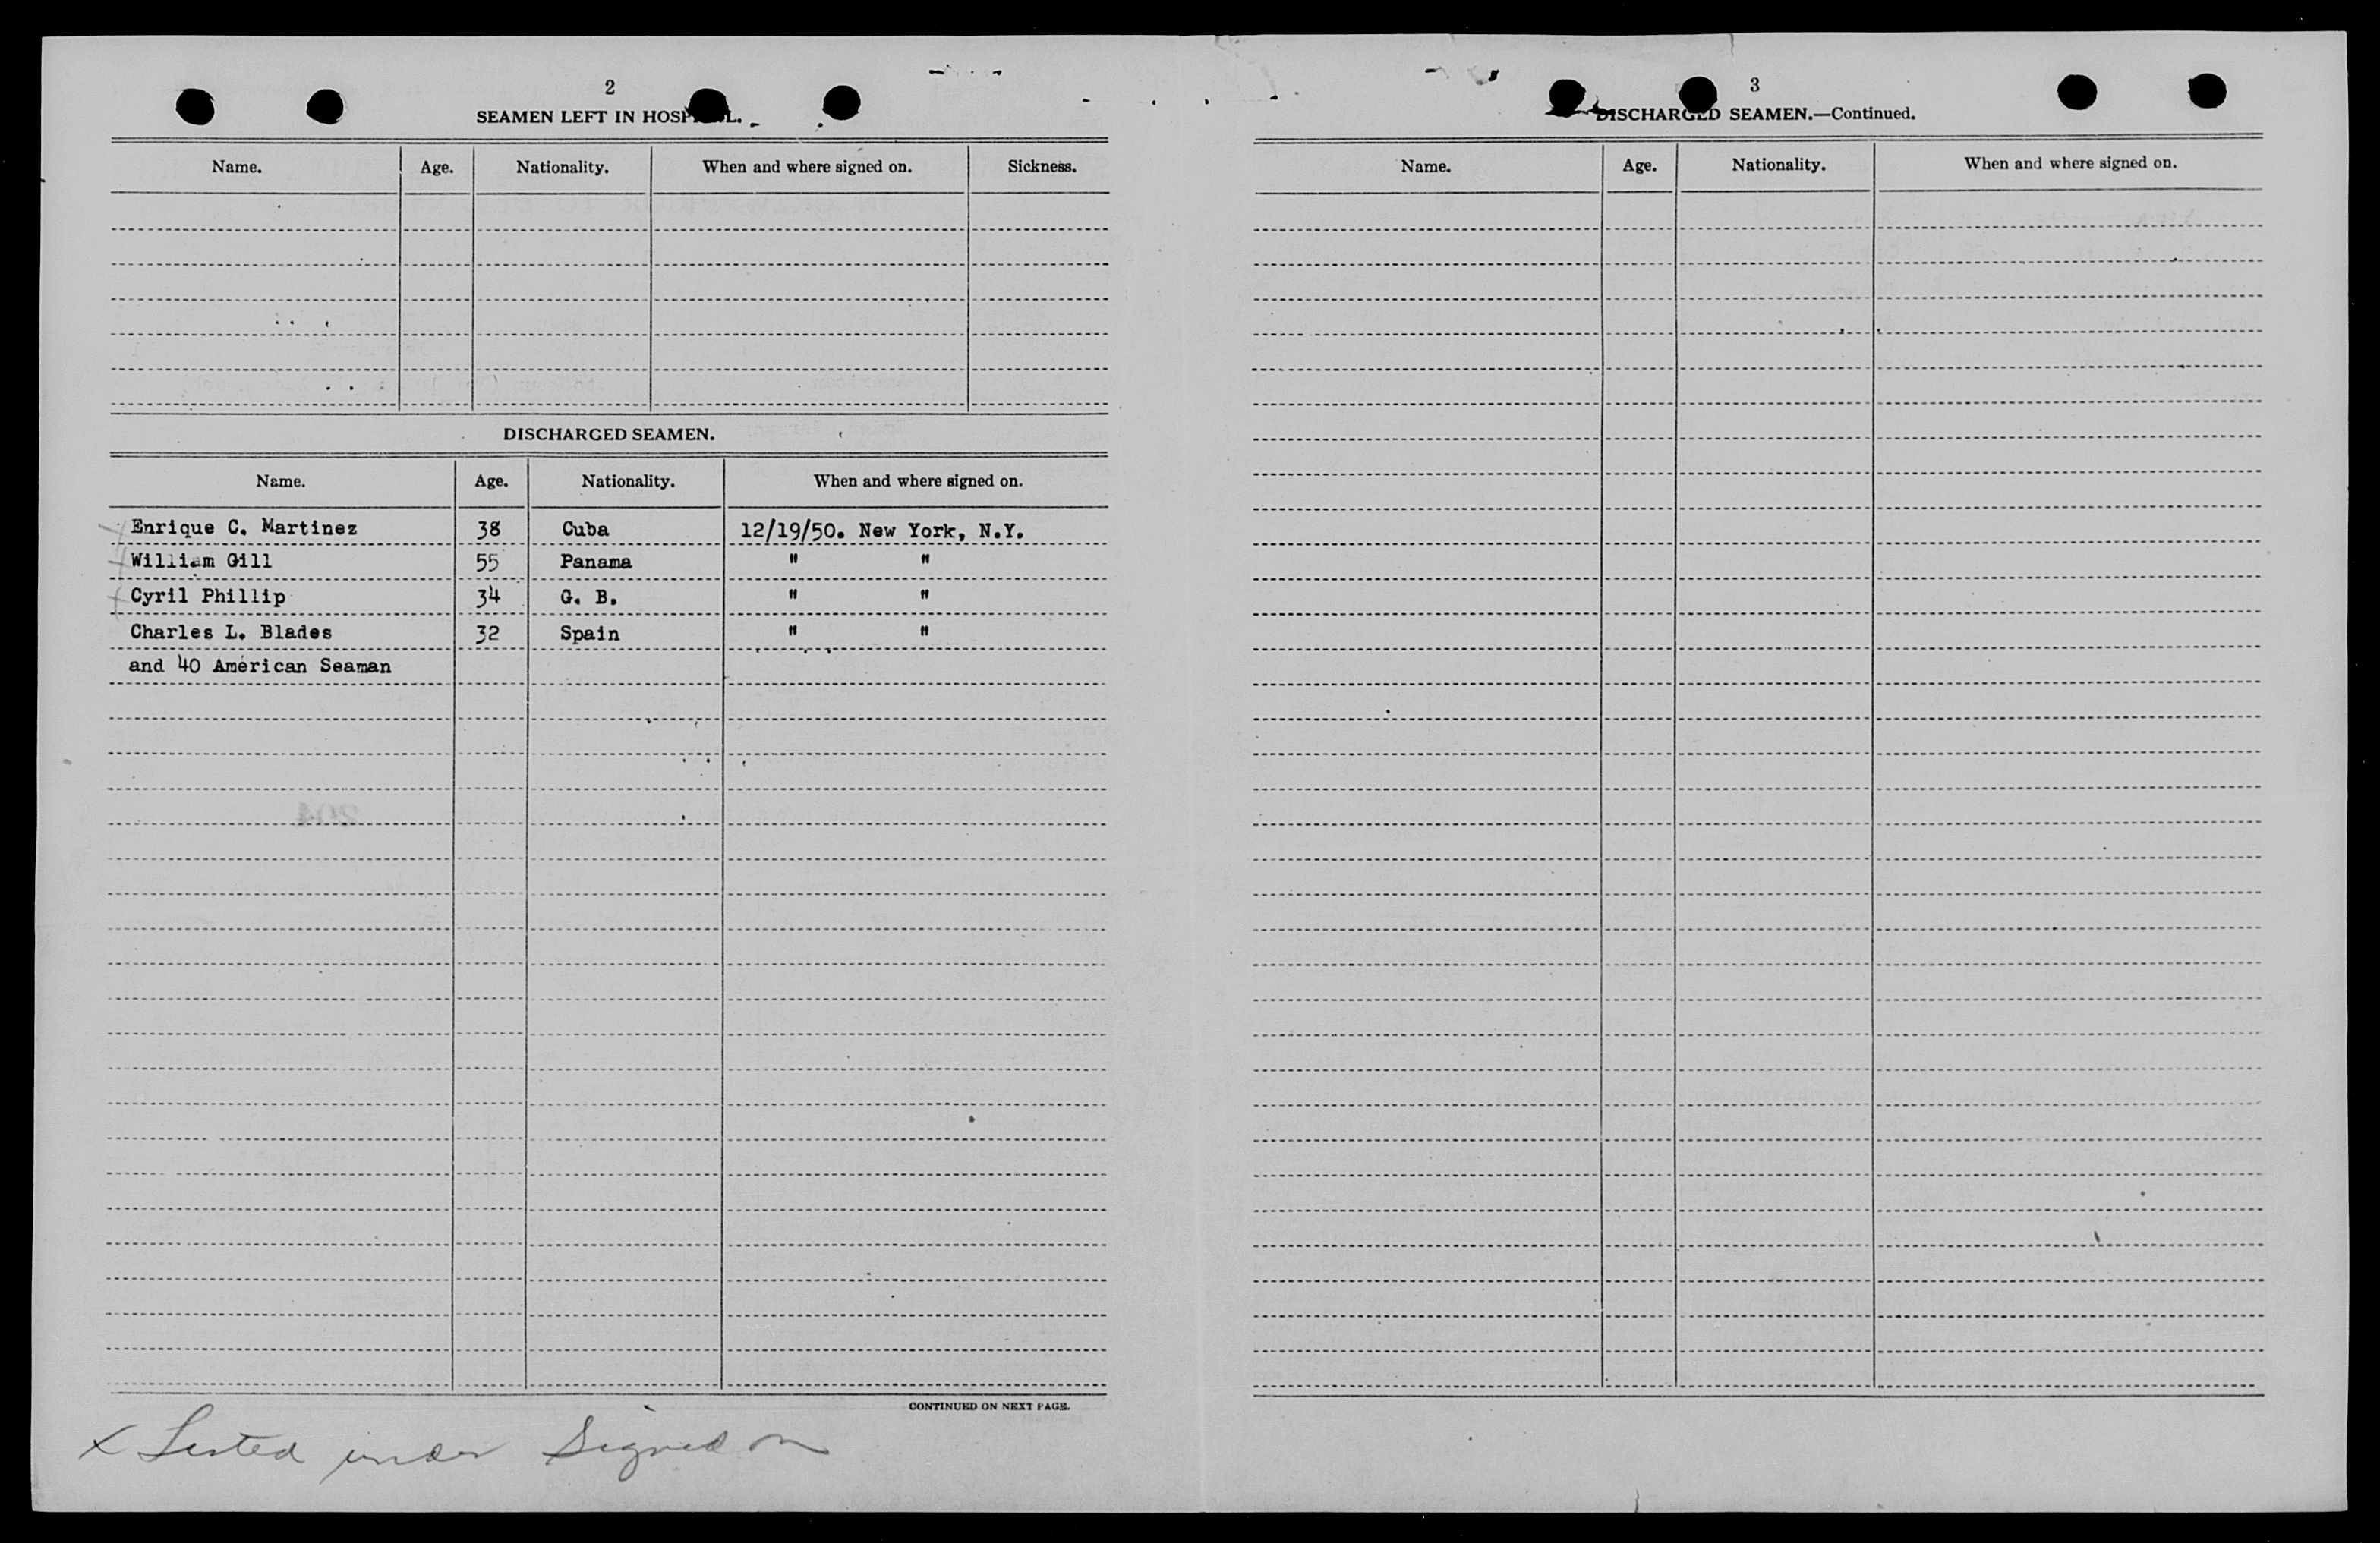 2
SEAMEN LEFT IN HOSPITAL.
Name. Age. Nationality. When and where signed on. Sickness.
DISCHARGED SEAMEN.
Name. Age. Nationality. When and where signed on.
Enrique C. Martinez 38 Cuba 12/19/50. New York, N.Y.
William Gill 55 Panama " "
Cyril Phillip 34 G. B. " "
Charles L. Blades 32 Spain " "
and 40 American Seaman
CONTINUED ON NEXT PAGE.
x Listed under Signed on
3
DISCHARGED SEAMEN.—Continued.
Name. Age. Nationality. When and where signed on.